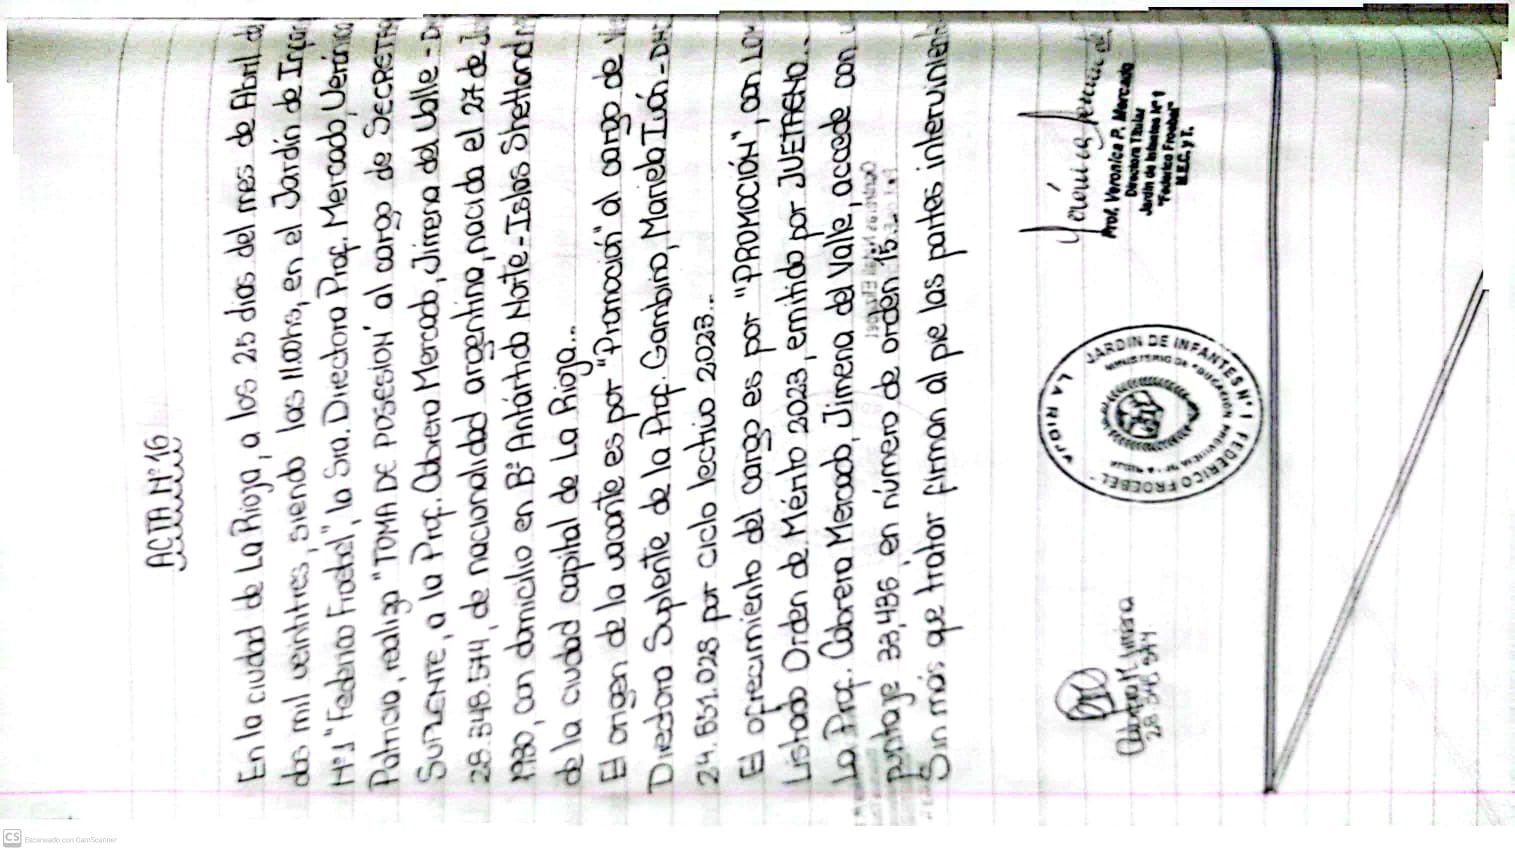 ACTA Nº16
En la ciudad de La Rioja, a los 25 días del mes de Abril de
dos mil veintitres, siendo las 11.00hs, en el Jardín de Infan
Nº1 "Federico Froebel", la Sra. Directora Prof. Mercado, Verónica
Patricia, realiza "TOMA DE POSESIÓN" al cargo de SECRETA
SUPLENTE, a la Prof. Cabrera Mercado, Jimena del Valle - D
28.348.544, de nacionalidad argentina, nacida el 27 de J
1980, con domicilio en Bº Antártida Norte - Islas Shettland
de la ciudad capital de La Rioja...
El origen de la vacante es por "Promoción" al cargo de Vi
Directora Suplente de la Prof. Gambino, Mariela Iván - DN
24.651.028 por ciclo lectivo 2023...
El ofrecimiento del cargo es por "PROMOCIÓN", con LOM
Listado Orden de Mérito 2023, emitido por JUETAENO...
La Prof. Cabrera Mercado, Jimena del Valle, accede con
puntaje 33,486 en número de orden 15.
Sin más que tratar firman al pie las partes interviniente
Cabrera M. Jimena
28 348 544
JARDIN DE INFANTES Nº 1 FEDERICO FROEBEL - LA RIOJA
MINISTERIO DE EDUCACION
Prof. Veronica P. Mercado
Directora Titular
Jardin de Infantes Nº 1
"Federico Froebel"
M.E.C. y T.
CS Escaneado con CamScanner